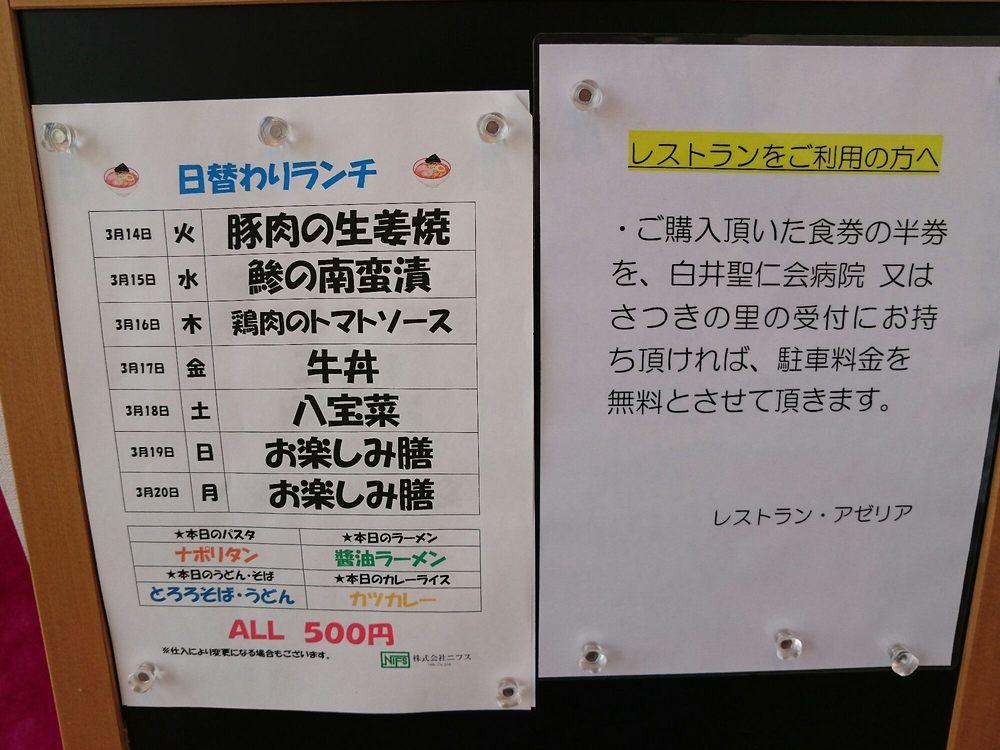 日替わりランチ
3月14日 火 豚肉の生姜焼
3月15日 水 鯵の南蛮漬
3月16日 木 鶏肉のトマトソース
3月17日 金 牛丼
3月18日 土 八宝菜
3月19日 日 お楽しみ膳
3月20日 月 お楽しみ膳
★本日のパスタ ★本日のラーメン
ナポリタン 醤油ラーメン
★本日のうどん・そば ★本日のカレーライス
とろろそば・うどん カツカレー
ALL 500円
※仕入により変更になる場合もございます。
NIFS 株式会社ニフス
レストランをご利用の方へ
・ご購入頂いた食券の半券
を、白井聖仁会病院 又は
さつきの里の受付にお持
ち頂ければ、駐車料金を
無料とさせて頂きます。
レストラン・アゼリア